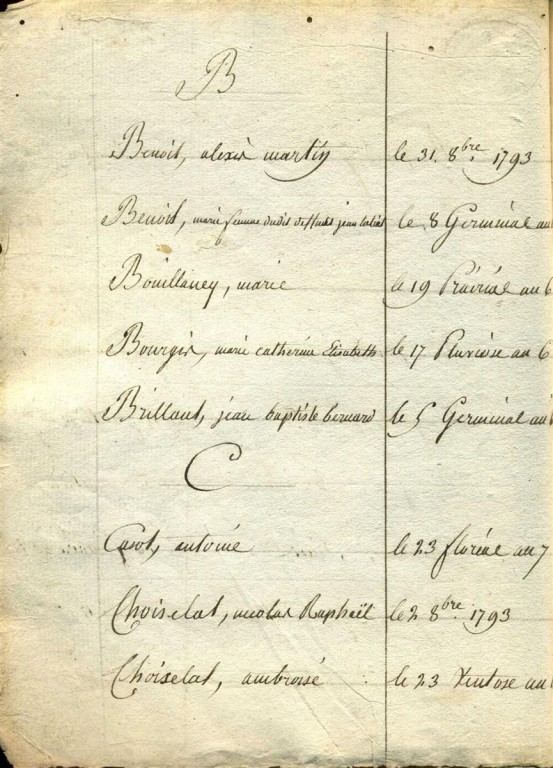 B
Benoit, alexis martin le 31. 8bre. 1793
Benoit, marie femme dudit jean le 8 Germinal an
Bouillancy, marie le 19 Prairial an 6
Bourgis, marie catherine Elisabeth le 17 Pluviose an 6
Brillant, jean baptiste bernard le 5 Germinal an
C
Casot, antoine le 23 floréal an 7
Choiselat, nicolas Raphaël le 2 8bre. 1793
Choiselat, ambroise le 23 Ventose an